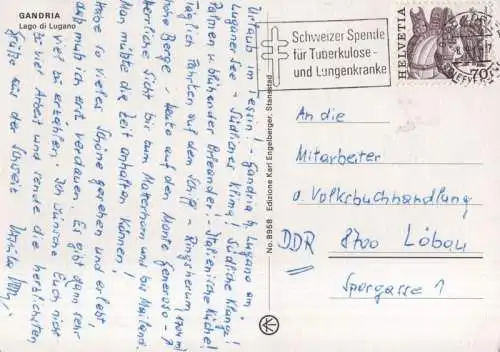 GANDRIA
Lago di Lugano
Urlaub im Tessin! - Gandria b. Lugano am
Luganer See - Südliches Klima! Südliche Klänge!
Palmen u. blühender Oleander! - Italienische Küche!
Täglich Fahrten auf dem Schiff - Ringsherum
hohe Berge - heute auf den Monte Generoso - 1704 m!
Herrliche Sicht bis zum Matterhorn und bis Mailand.
Man müßte die Zeit anhalten können!
Habe so vieles Schöne gesehen und erlebt,
daß muß ich erst verdauen. Es gibt dann sehr
viel zu erzählen. - Ich wünsche Euch nicht
zu viel Arbeit und sende die herzlichsten
Grüße aus der Schweiz
No. 8958 Edizione Karl Engelberger, Stansstad
Schweizer Spende
für Tuberkulose-
und Lungenkranke
HELVETIA
70
An die
Mitarbeiter
d. Volksbuchhandlung
DDR 8700 Löbau
Sporgasse 1